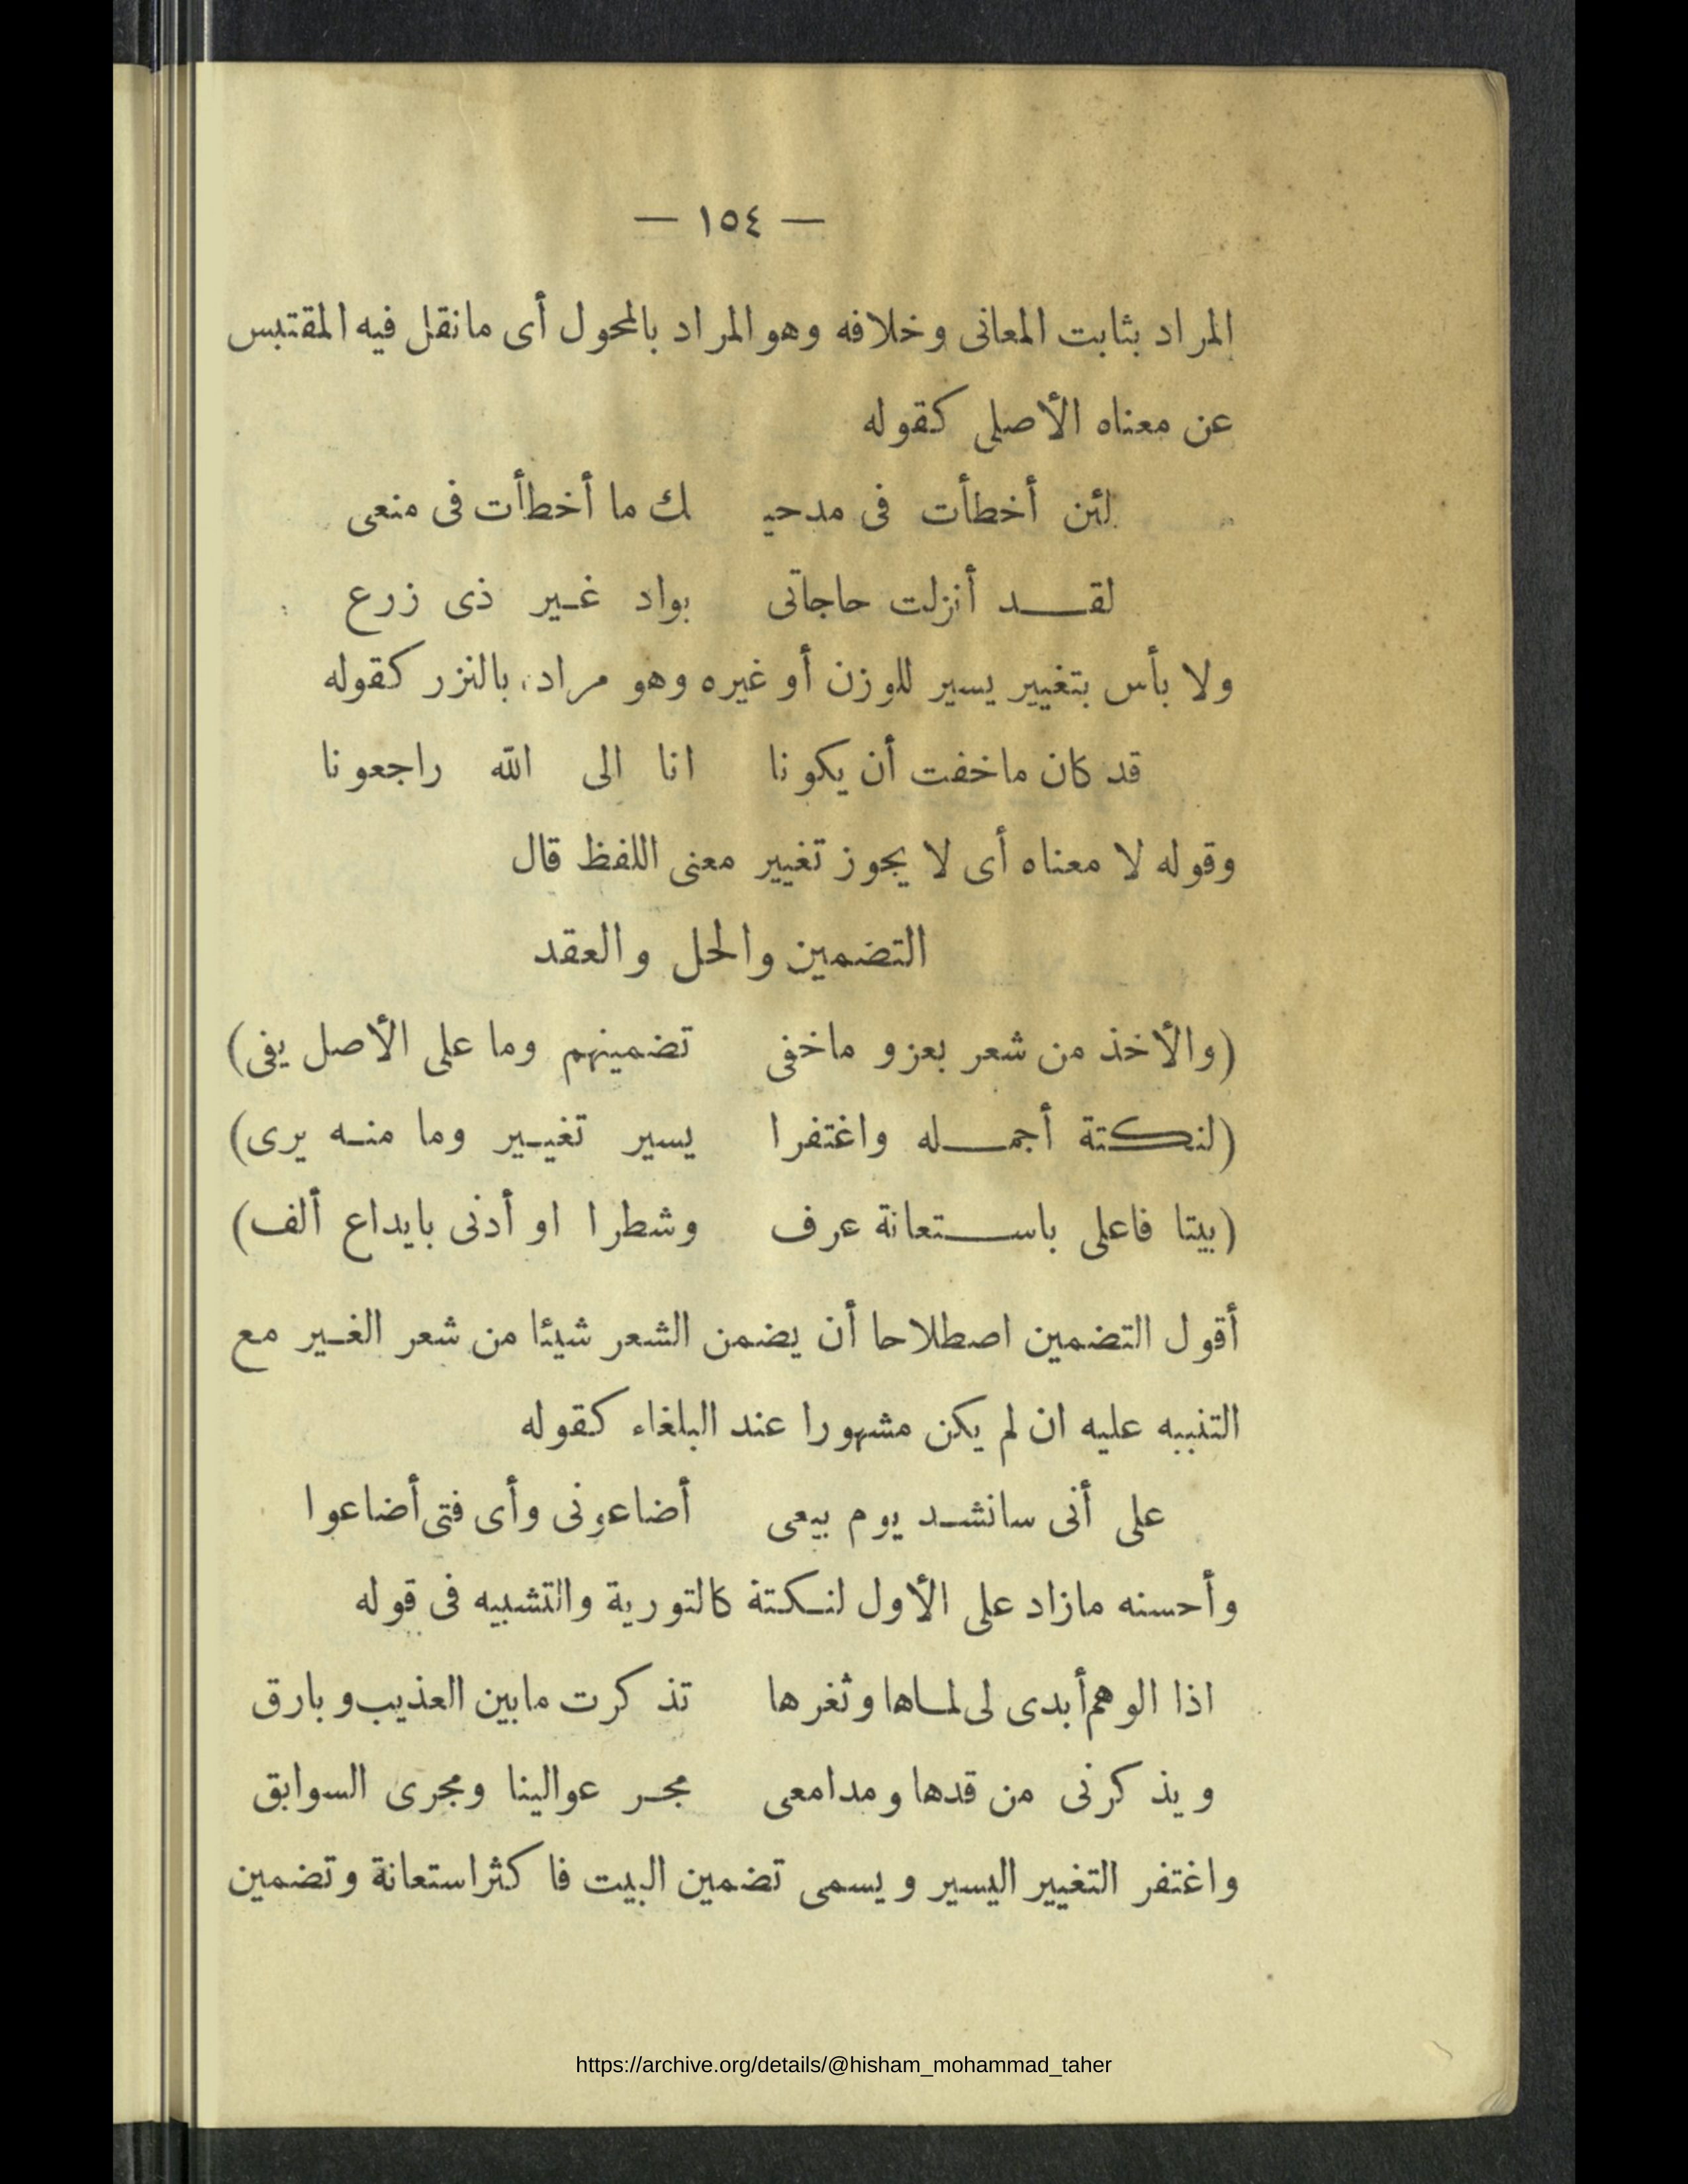 — ١٥٤ —
المراد بثابت المعانى وخلافه وهو المراد بالمحول أى مانقل فيه المقتبس
عن معناه الأصلى كقوله
لئن أخطأت فى مدحيـ ـك ما أخطأت فى منعى
لقـــد أنزلت حاجاتى بواد غير ذى زرع
ولا بأس بتغيير يسير للوزن أو غيره وهو مراده بالنزر كقوله
قد كان ماخفت أن يكونا انا الى الله راجعونا
وقوله لا معناه أى لا يجوز تغيير معنى اللفظ قال
التضمين والحل والعقد
(والأخذ من شعر بعزو ماخفى تضمينهم وما على الأصل يفى)
(لنكتة أجمـــله واغتفرا يسير تغيير وما منه يرى)
(بيتا فاعلى باســـتعانة عرف وشطرا او أدنى بايداع ألف)
أقول التضمين اصطلاحا أن يضمن الشعر شيئا من شعر الغير مع
التنبيه عليه ان لم يكن مشهورا عند البلغاء كقوله
على أنى سانشد يوم بيعى أضاعونى وأى فتى أضاعوا
وأحسنه مازاد على الأول لنكتة كالتورية والتشبيه فى قوله
اذا الوهم أبدى لى لماها وثغرها تذكرت مابين العذيب وبارق
ويذكرنى من قدها ومدامعى مجر عوالينا ومجرى السوابق
واغتفر التغيير اليسير ويسمى تضمين البيت فاكثر استعانة وتضمين
https://archive.org/details/@hisham_mohammad_taher